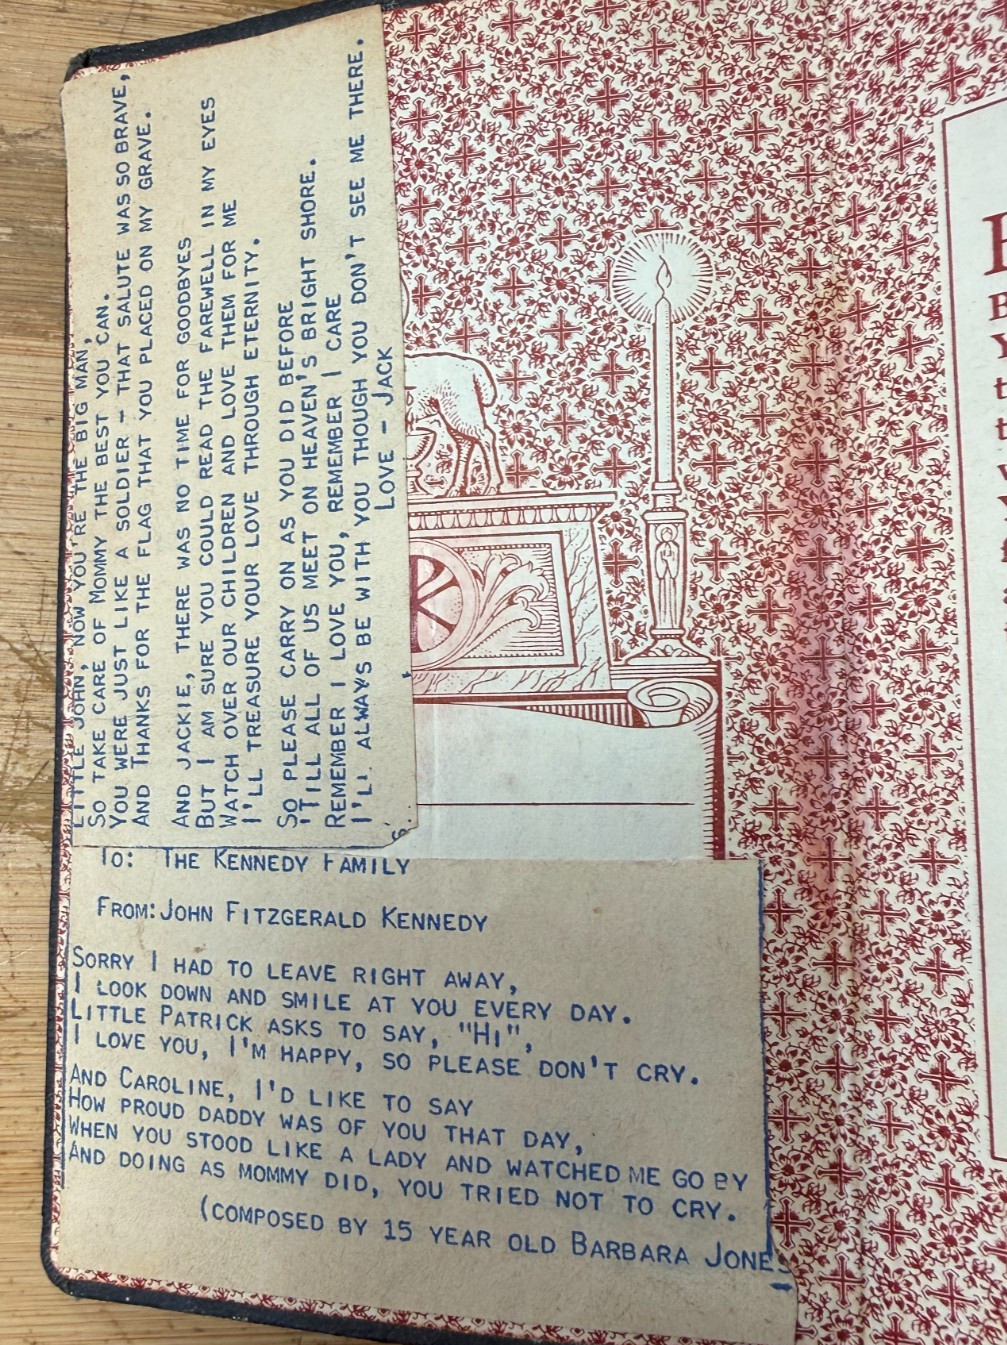 To: THE KENNEDY FAMILY
FROM: JOHN FITZGERALD KENNEDY
SORRY I HAD TO LEAVE RIGHT AWAY,
I LOOK DOWN AND SMILE AT YOU EVERY DAY.
LITTLE PATRICK ASKS TO SAY, "HI",
I LOVE YOU, I'M HAPPY, SO PLEASE DON'T CRY.
AND CAROLINE, I'D LIKE TO SAY
HOW PROUD DADDY WAS OF YOU THAT DAY,
WHEN YOU STOOD LIKE A LADY AND WATCHED ME GO BY
AND DOING AS MOMMY DID, YOU TRIED NOT TO CRY.
(COMPOSED BY 15 YEAR OLD BARBARA JONES
LITTLE JOHN, NOW YOU'RE THE BIG MAN,
SO TAKE CARE OF MOMMY THE BEST YOU CAN.
YOU WERE JUST LIKE A SOLDIER - THAT SALUTE WAS SO BRAVE,
AND THANKS FOR THE FLAG THAT YOU PLACED ON MY GRAVE.
AND JACKIE, THERE WAS NO TIME FOR GOODBYES
BUT I AM SURE YOU COULD READ THE FAREWELL IN MY EYES
WATCH OVER OUR CHILDREN AND LOVE THEM FOR ME
I'LL TREASURE YOUR LOVE THROUGH ETERNITY.
SO PLEASE CARRY ON AS YOU DID BEFORE
'TILL ALL OF US MEET ON HEAVEN'S BRIGHT SHORE.
REMEMBER I LOVE YOU, REMEMBER I CARE
I'LL ALWAYS BE WITH YOU THOUGH YOU DON'T SEE ME THERE.
LOVE - JACK